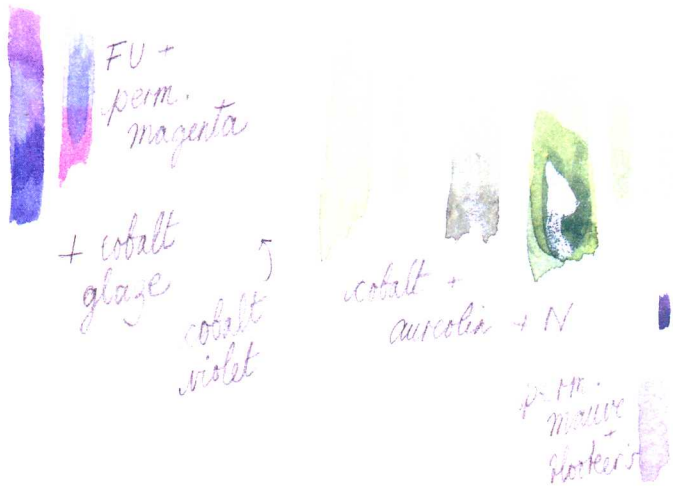 FU +
perm.
magenta
+ cobalt
glaze
cobalt
violet
cobalt +
aureolin + N
perm.
mauve
+
Hooker's